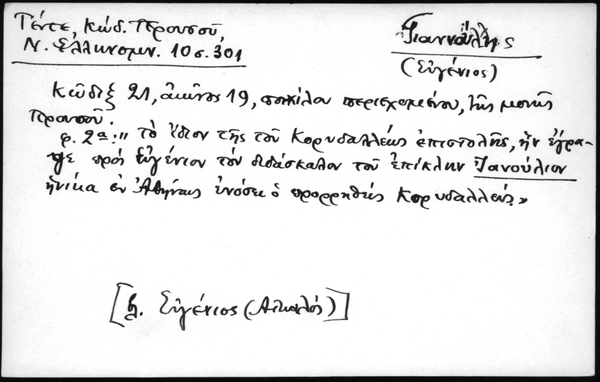 Γέντε, Κώδ. Γερουσοῦ,
Ν. Ἑλληνομν. 10 σ. 301
Γιαννούλης
(Εὐγένιος)
Κῶδιξ 21, αἰῶνος 19, ποικίλου περιεχομένου, τῆς μονῆς
Γερουσοῦ.
φ. 2α: "τὸ ἴδιον τῆς τοῦ Κορυδαλλέως ἐπιστολῆς, ἣν ἔγρα-
ψε πρὸς Εὐγένιον τὸν διδάσκαλον τοῦ ἐπίκλην Γιανούλιον
ἡνίκα ἐν Ἀθήναις ἐνόσει ὁ προρρηθεὶς Κορυδαλλεύς"
[β. Εὐγένιος (Αἰτωλός)]